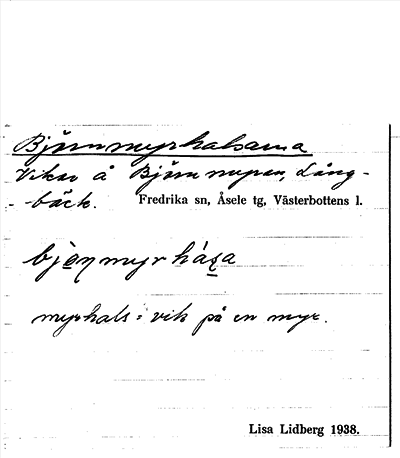 Björnmyrhalsarna
Vikar å Björnmyran, Lång-
-bäck. Fredrika sn, Åsele tg, Västerbottens l.
myrhals = vik på en myr.
Lisa Lidberg 1938.